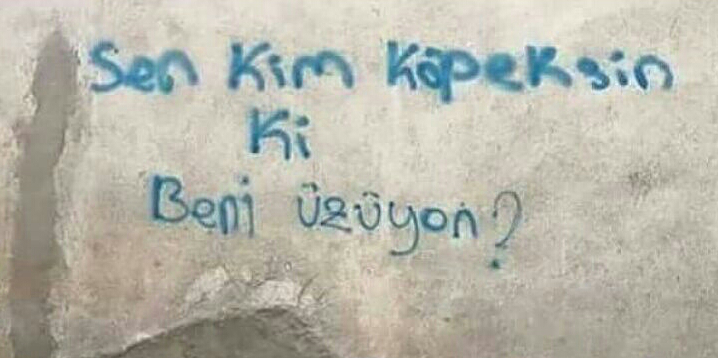 Sen Kim KöpeKsin
Ki
Beni üzüyon?